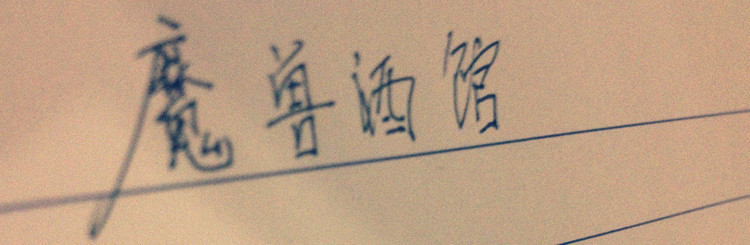 魔兽酒馆